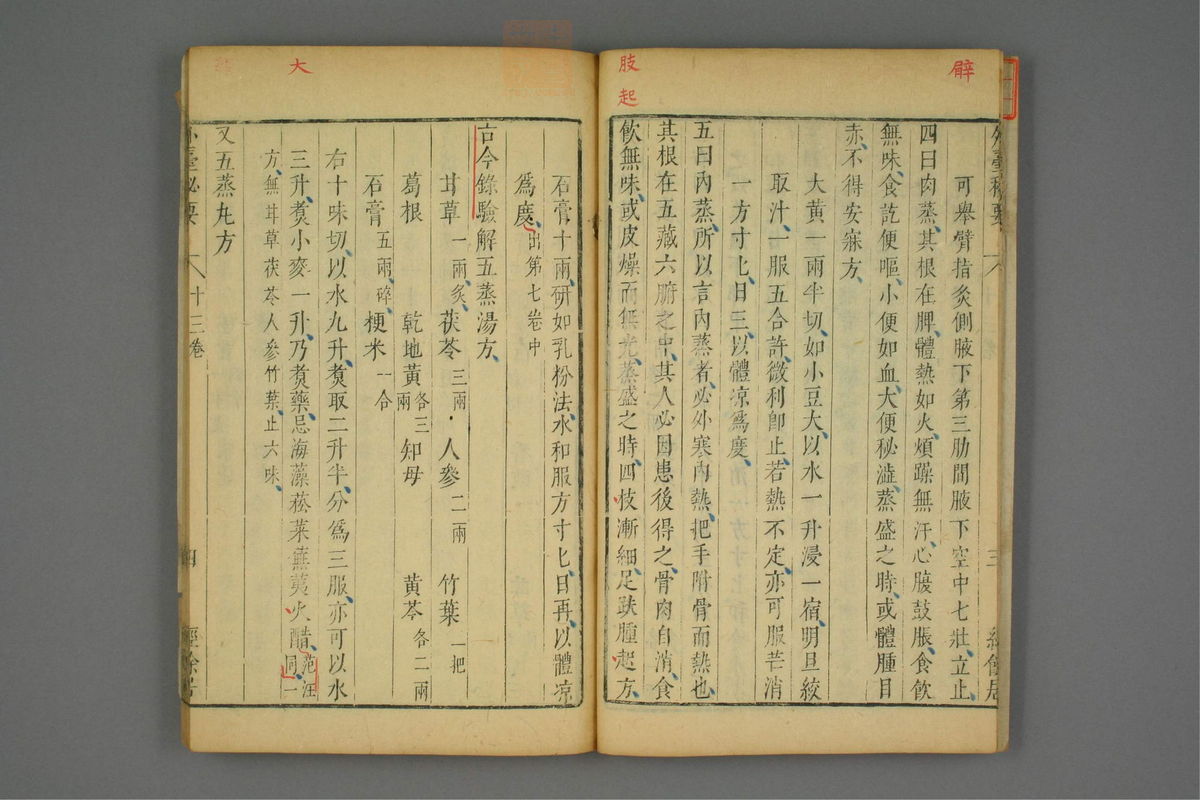 臂
肢
起
可舉臂指灸側腋下第三肋間腋下空中七壯立止
四曰肉蒸其根在脾體熱如火煩躁無汗心腹鼓脹食飲
無味食訖便嘔小便如血大便秘澁蒸盛之時或體腫目
赤不得安寐方
大黃一兩半切如小豆大以水一升浸一宿明旦絞
取汁一服五合許微利卽止若熱不定亦可服芒消
一方寸匕日三以體凉爲度
五曰內蒸所以言內蒸者必外寒內熱把手附骨而熱也
其根在五藏六腑之中其人必因患後得之骨肉自消食
飲無味或皮燥而無光蒸盛之時四枝漸細足趺腫起方
大
石膏十兩研如乳粉法水和服方寸匕日再以體凉
爲度出第七卷中
古今錄驗解五蒸湯方
甘草一兩炙 茯苓三兩 人參二兩 竹葉一把
葛根 乾地黃各三兩 知母 黃芩各二兩
石膏五兩碎 粳米一合
右十味切以水九升煑取二升半分爲三服亦可以水
三升煑小麥一升乃煑藥忌海藻菘菜蕪荑火醋范汪同一
方無甘草茯苓人參竹葉止六味
又五蒸丸方
外臺秘要 十三卷 四 經餘居